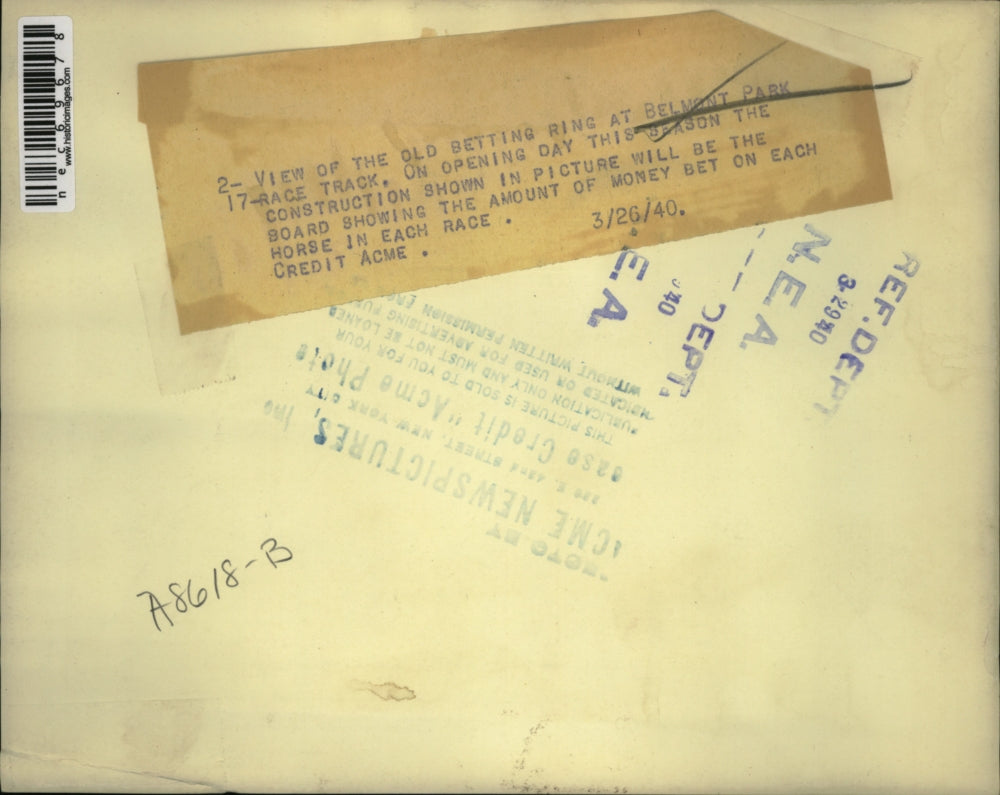 nec69678
www.historicimages.com
2- VIEW OF THE OLD BETTING RING AT BELMONT PARK
17-RACE TRACK. ON OPENING DAY THIS SEASON THE
CONSTRUCTION SHOWN IN PICTURE WILL BE THE
BOARD SHOWING THE AMOUNT OF MONEY BET ON EACH
HORSE IN EACH RACE .
3/26/40.
CREDIT ACME .
.E.A.
40
DEPT.
N.E.A.
3-29 40
REF. DEPT
OTO BY
ACME NEWSPICTURES, Inc
STREET, NEW YORK CITY
ease Credit "Acme Photo
THIS PICTURE IS SOLD TO YOU FOR YOUR
PUBLICATION ONLY AND MUST NOT BE LOANED
DICATED OR USED FOR ADVERTISING PUR
WITHOUT WRITTEN PERMISSION
A8618-B